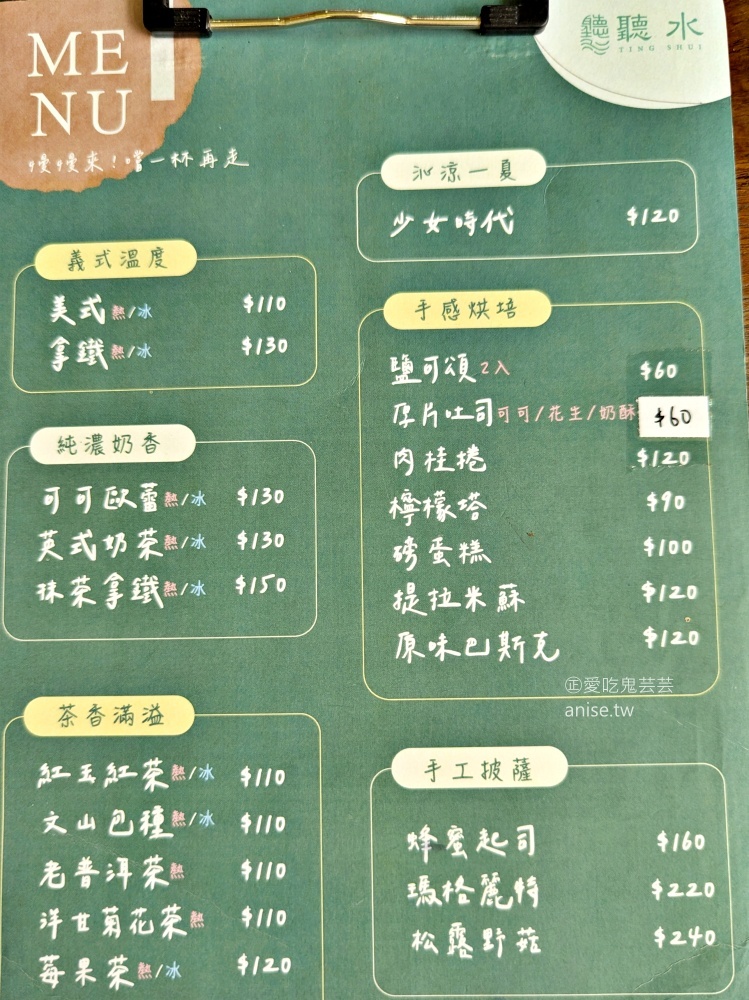 MENU
慢慢來!嚐一杯再走
聽水
TING SHUI
義式溫度
美式熱/冰 $110
拿鐵熱/冰 $130
純濃奶香
可可歐蕾熱/冰 $130
英式奶茶熱/冰 $130
抹茶拿鐵熱/冰 $150
茶香滿溢
紅玉紅茶熱/冰 $110
文山包種熱/冰 $110
老普洱茶熱 $110
洋甘菊花茶熱 $110
莓果茶熱/冰 $120
沁涼一夏
少女時代 $120
手感烘培
鹽可頌2入 $60
厚片吐司可可/花生/奶酥 $60
肉桂捲 $120
檸檬塔 $90
磅蛋糕 $100
提拉米蘇 $120
原味巴斯克 $120
㊣愛吃鬼芸芸
anise.tw
手工披薩
蜂蜜起司 $160
瑪格麗特 $220
松露野菇 $240